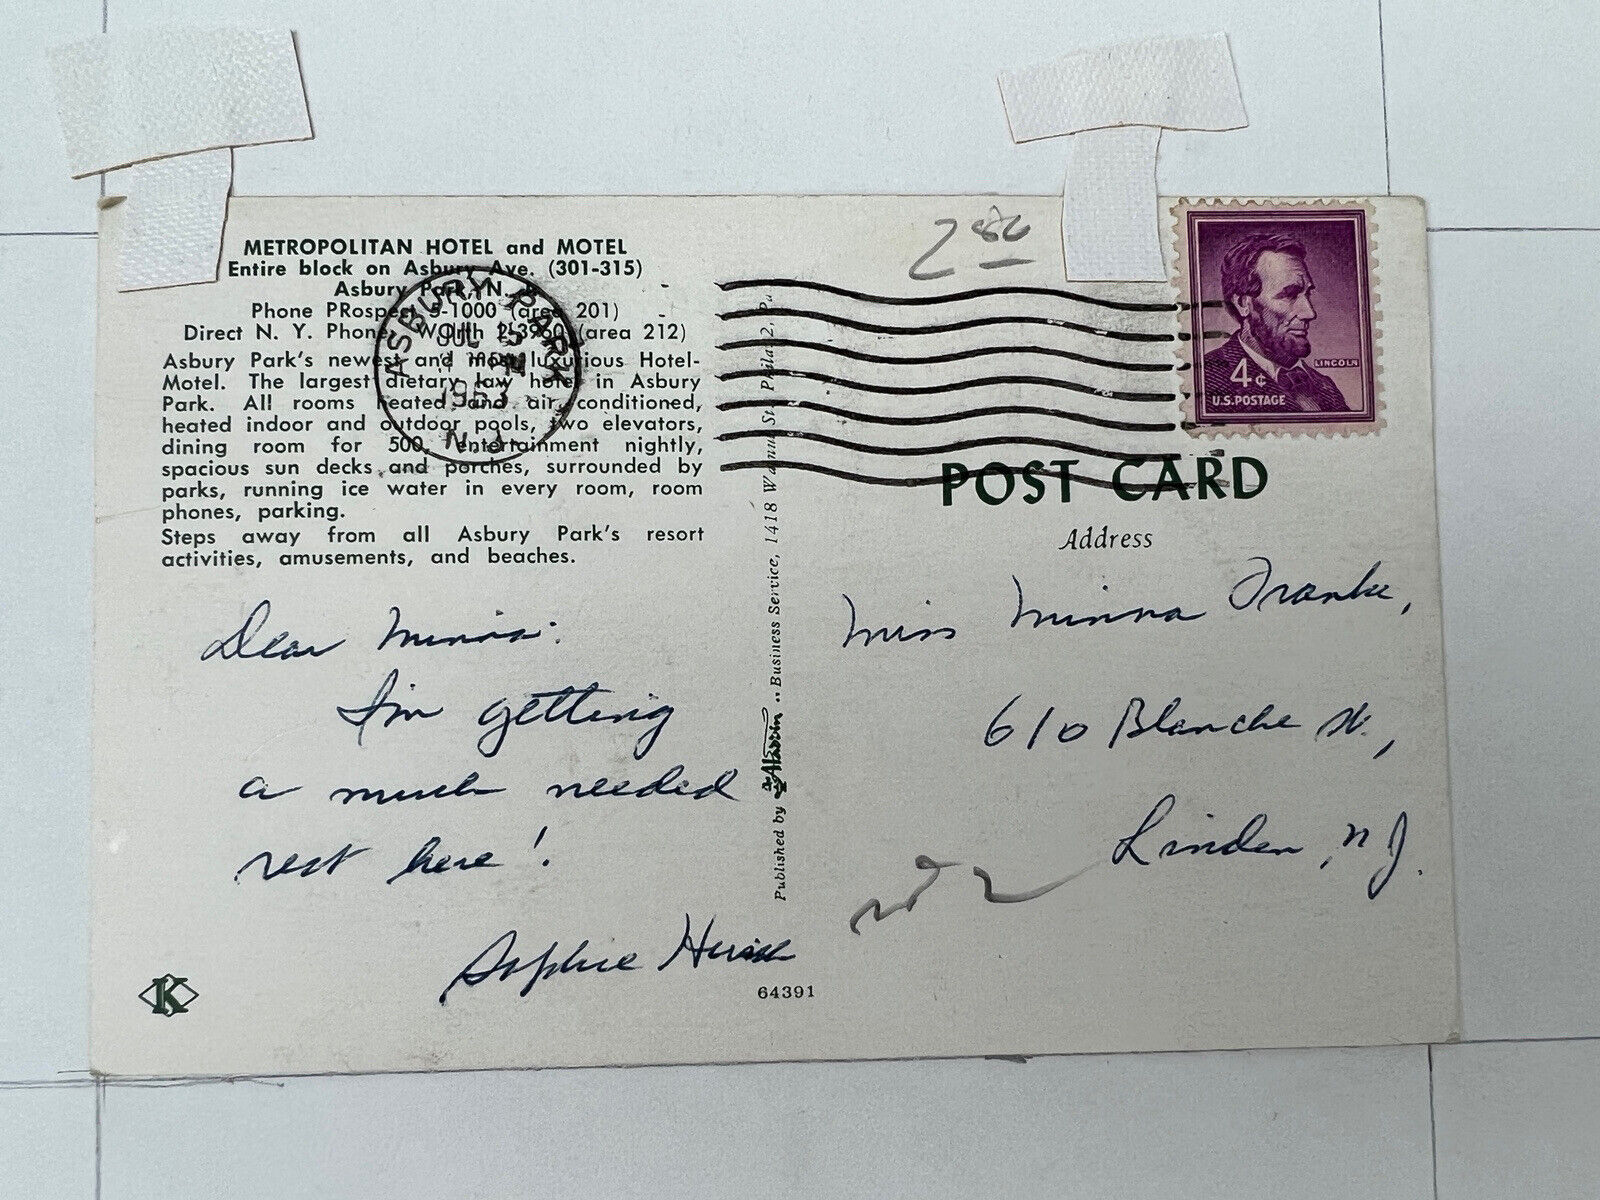 METROPOLITAN HOTEL and MOTEL
Entire block on Asbury Ave. (301-315)
Asbury Park, N.
Phone PRospect 5-1000 (area 201)
Direct N. Y. Phone, WOrth 2-3960 (area 212)
Asbury Park's newest and most luxurious Hotel-
Motel. The largest dietary law hotel in Asbury
Park. All rooms heated and air conditioned,
heated indoor and outdoor pools, two elevators,
dining room for 500, entertainment nightly,
spacious sun decks and porches, surrounded by
parks, running ice water in every room, room
phones, parking.
Steps away from all Asbury Park's resort
activities, amusements, and beaches.
ASBURY PARK
JUL 15
PM
1963
N.J.
Dear Minna:
I'm getting
a much needed
rest here!
Sophie
K
64391
Published by Aladdin .. Business Service, 1418 Walnut St. Phila. 2, Pa
286
LINCOLN
4¢
U.S. POSTAGE
POST CARD
Address
Miss Minna Franke,
610 Blanche St.,
Linden, N.J.